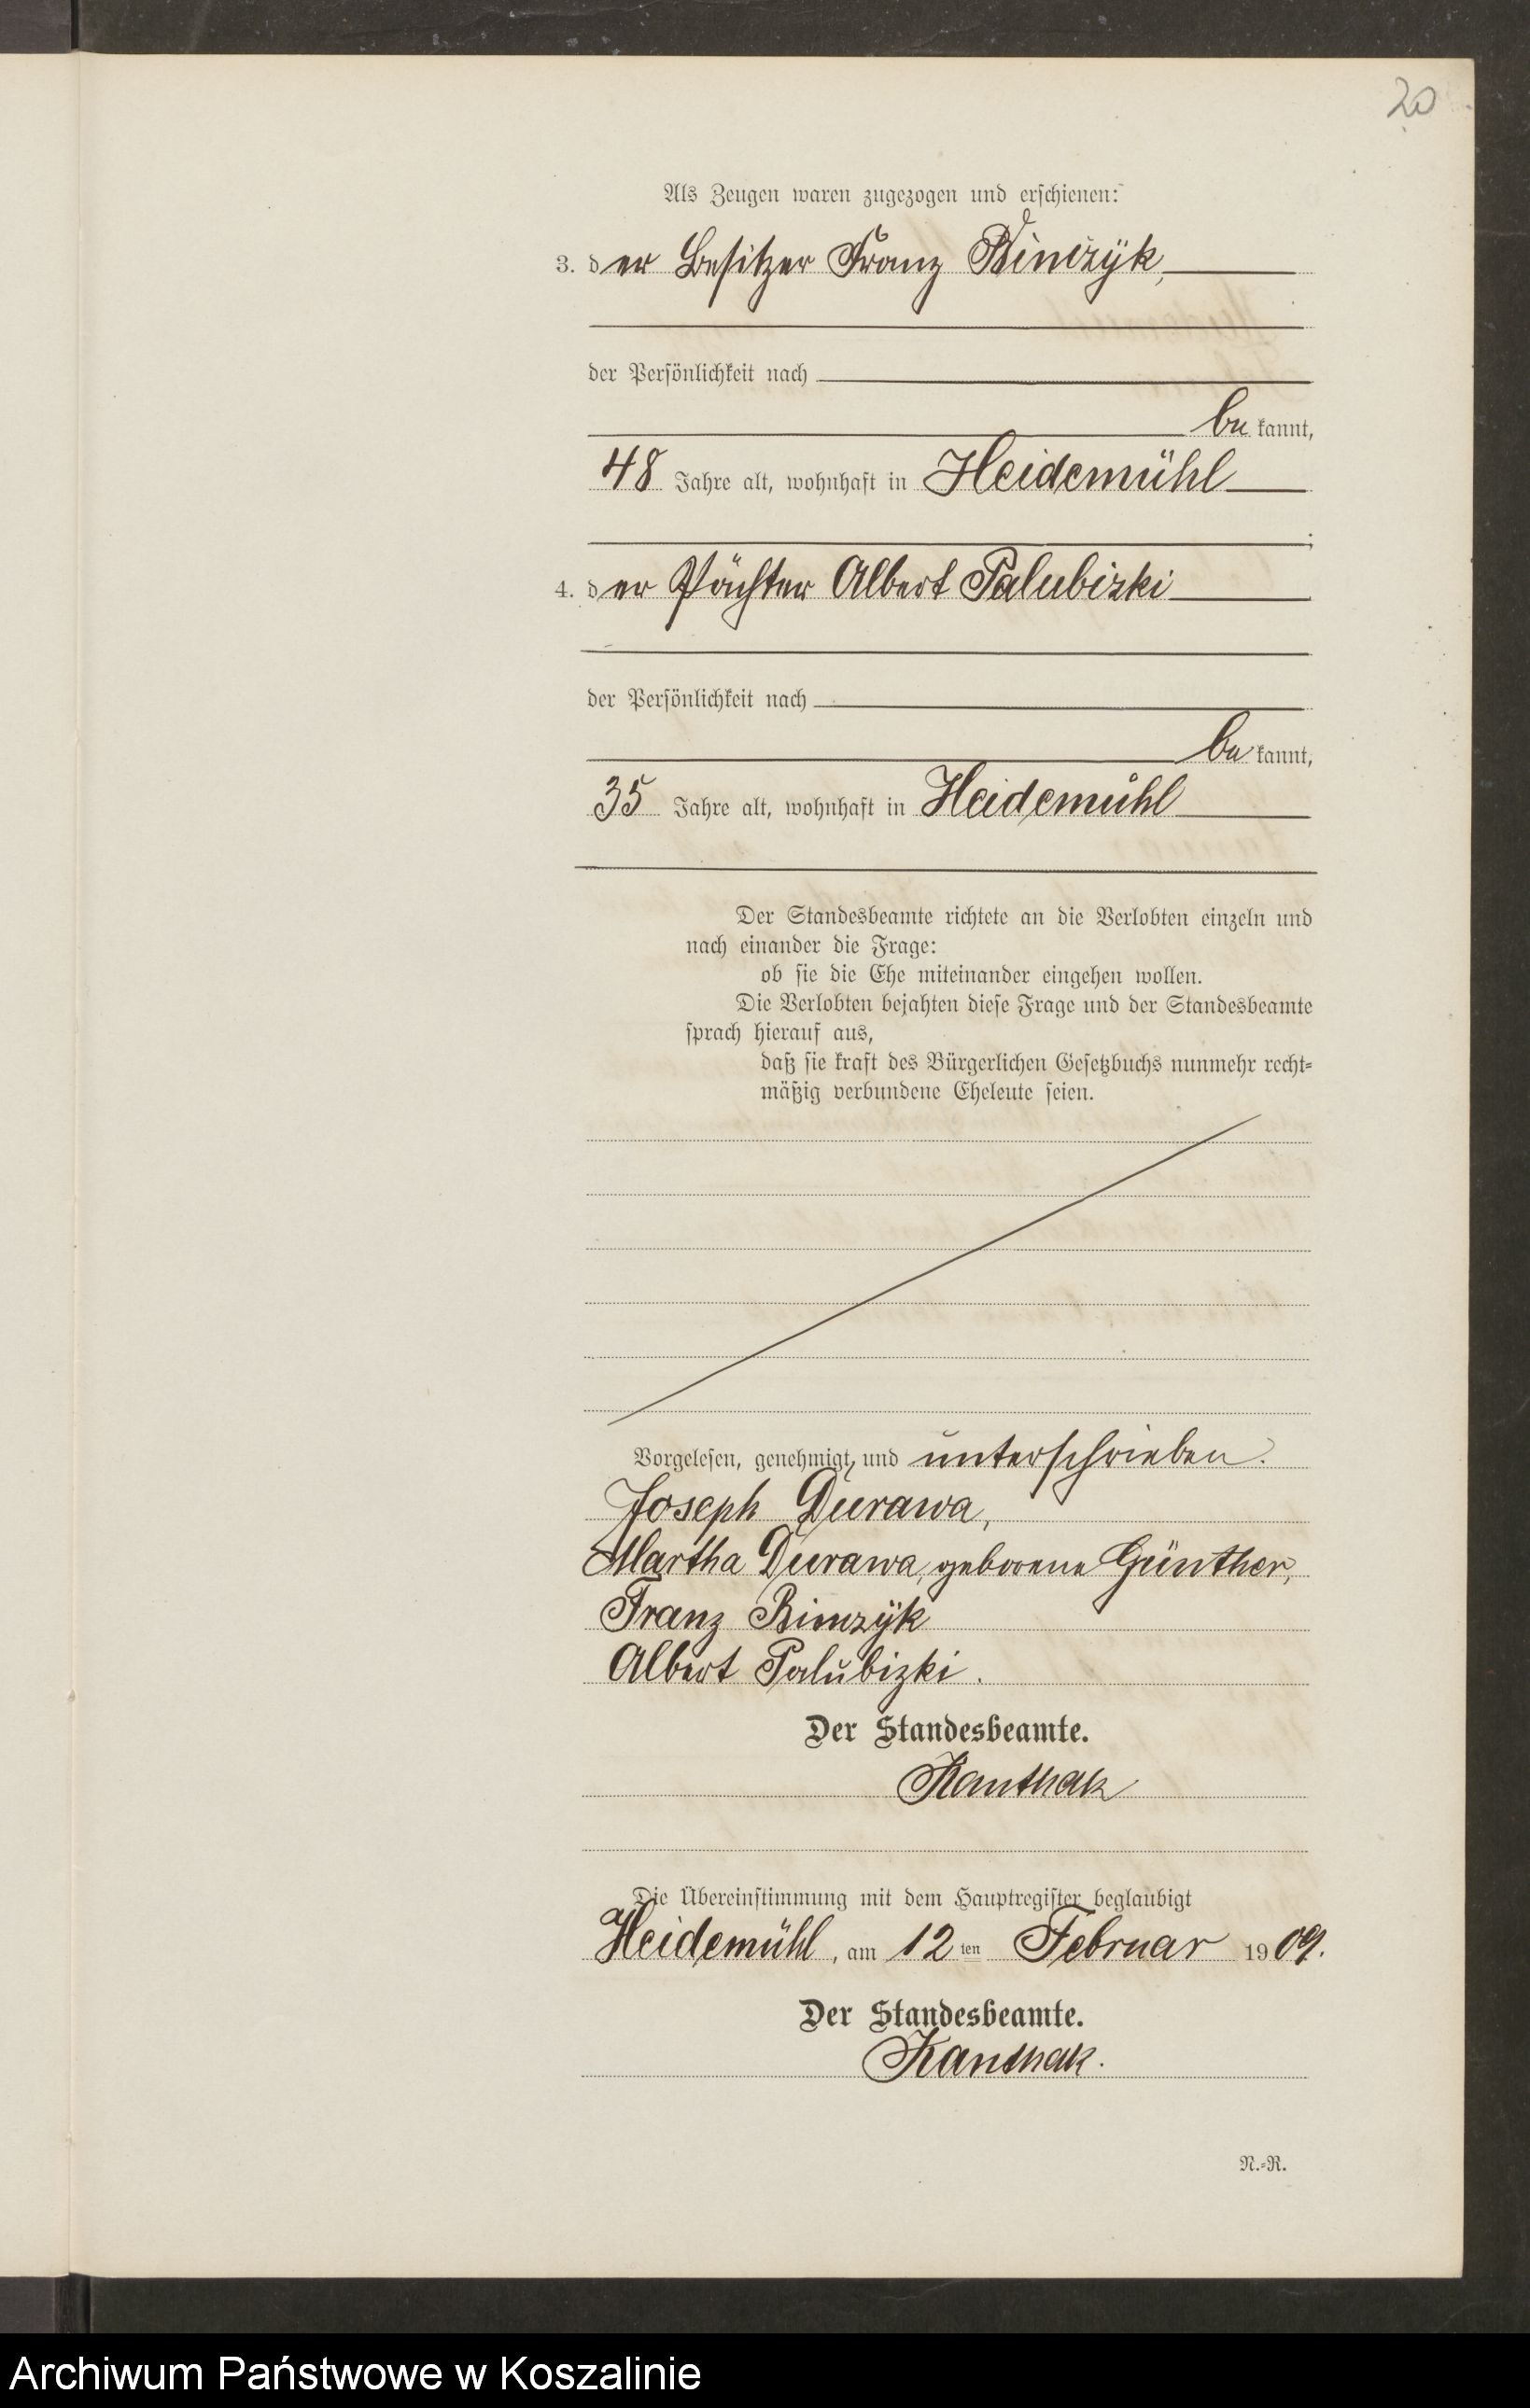 20
Als Zeugen waren zugezogen und erschienen:
3. der Besitzer Franz
der Persönlichkeit nach
bekannt,
48 Jahre alt, wohnhaft in Heidemühl
;
4. der Pächter Albert Palubizki
der Persönlichkeit nach
bekannt,
35 Jahre alt, wohnhaft in Heidemühl
Der Standesbeamte richtete an die Verlobten einzeln und
nach einander die Frage:
ob sie die Ehe miteinander eingehen wollen.
Die Verlobten bejahten diese Frage und der Standesbeamte
sprach hierauf aus,
daß sie kraft des Bürgerlichen Gesetzbuchs nunmehr recht-
mäßig verbundene Eheleute seien.
Vorgelesen, genehmigt, und unterschrieben.
Joseph Durawa,
Martha Durawa, geborene Günther,
Franz
Albert Palubizki.
Der Standesbeamte.
Kanthak
Die Übereinstimmung mit dem Hauptregister beglaubigt
Heidemühl, am 12ten Februar 1909.
Der Standesbeamte.
Kanthak.
N.-R.
Archiwum Państwowe w Koszalinie